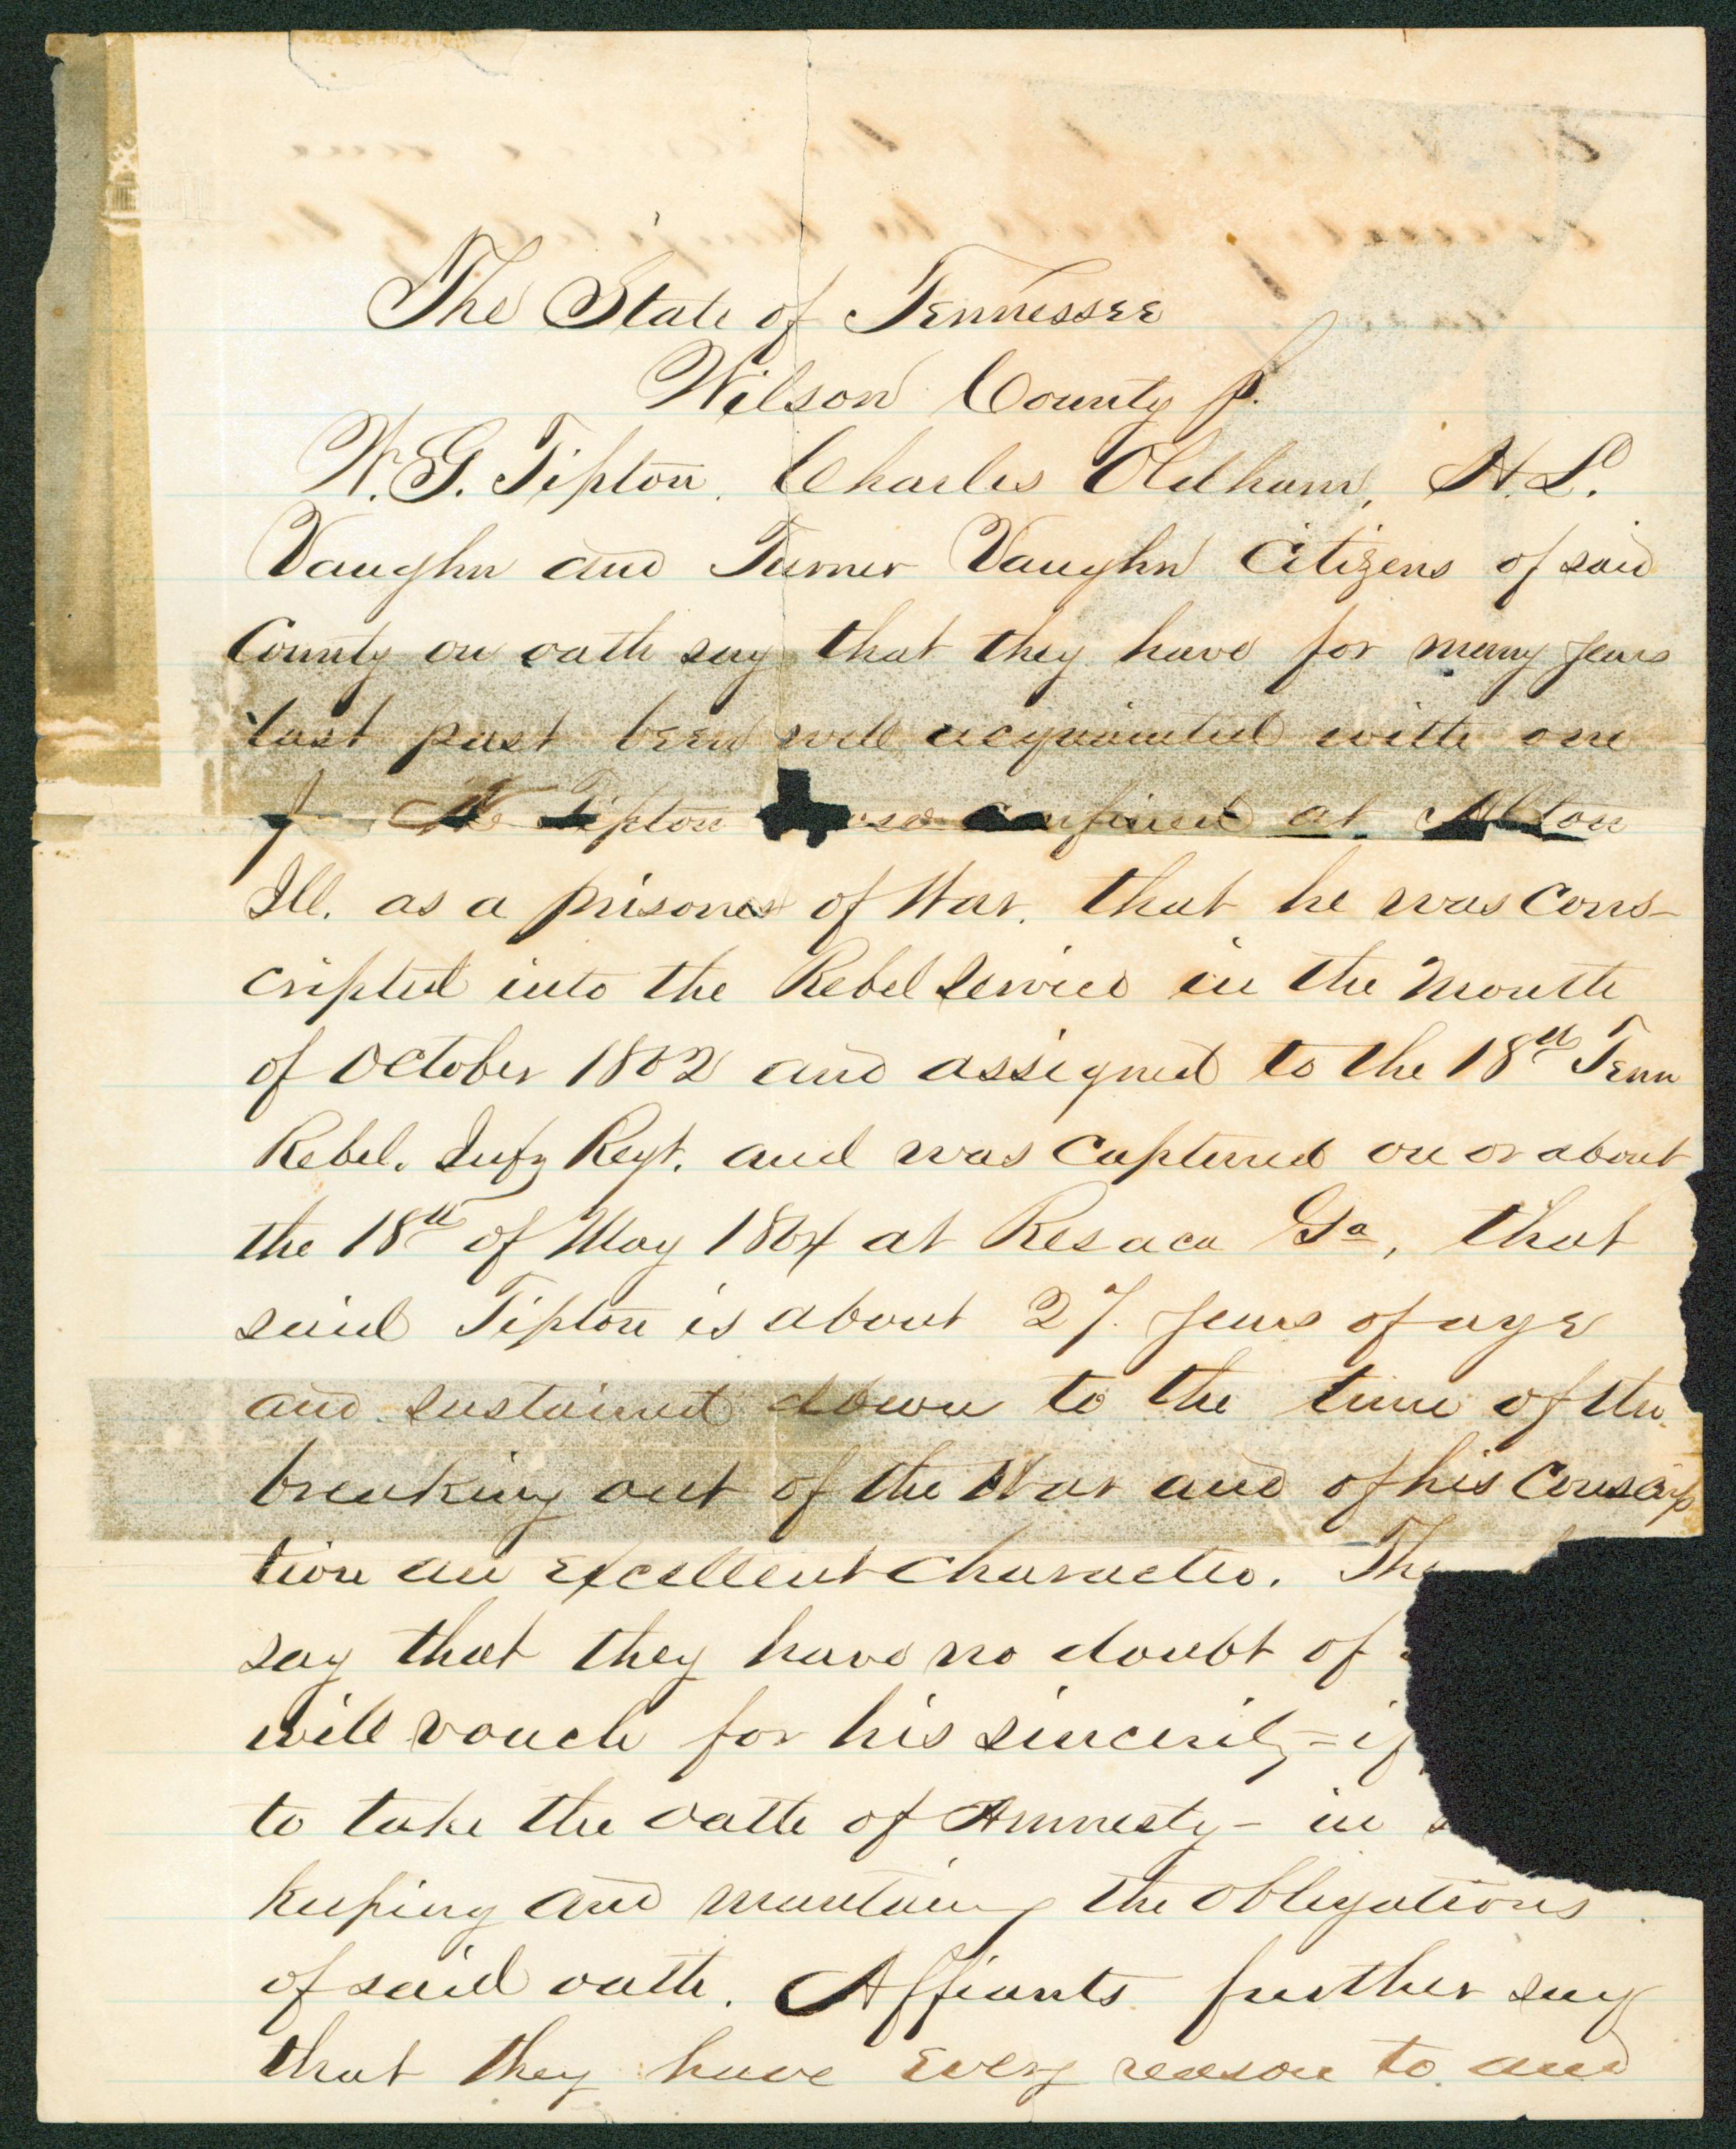 The State of Tennessee
Wilson County
W. G. Tipton, Charles Oldham, H. L.
Vaughn and Turner Vaughn Citizens of said
County on oath say that they have for many years
last past been well acquainted with one
J Tipton confined at Alton
Ill. as a prisoner of War. that he was Cons-
cripted into the Rebel Service in the Month
of October 1862 and assigned to the 18th Tenn
Rebel. Infy Regt. and was Captured on or about
the 18th of May 1864 at Resaca Ga, that
said Tipton is about 27. years of age
and sustained down to the time of the
breaking out of the War and of his Conscrip
tion an excellent character. The
say that they have no doubt of
will vouch for his sincerity - if
to take the oath of Amnesty - in
keeping and maintaing the obligations
of said oath. Affiants further say
that they have every reason to and